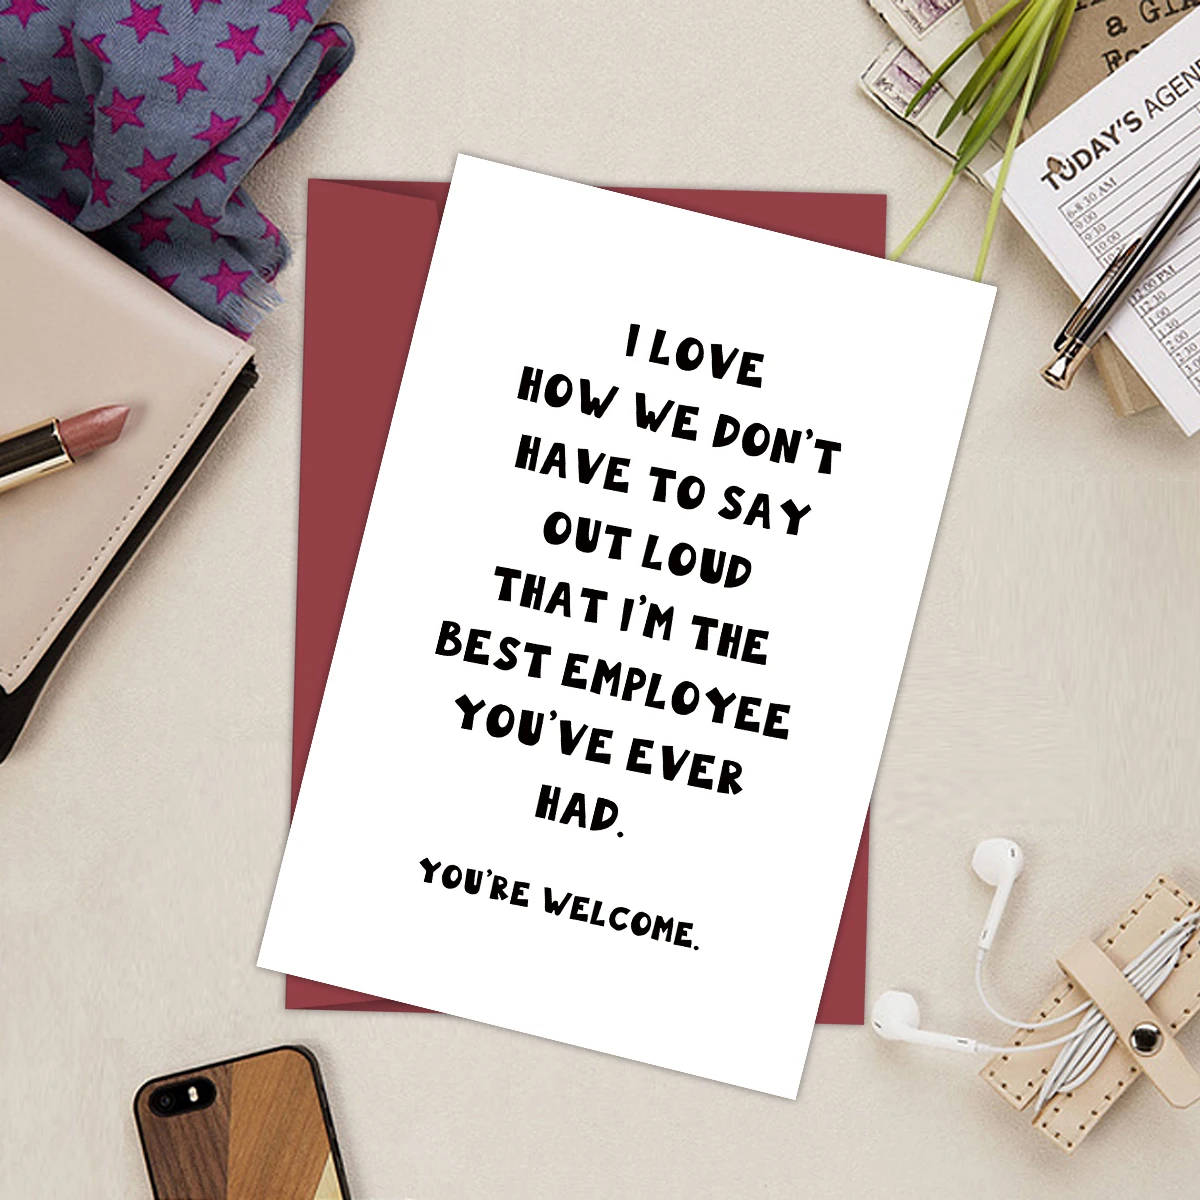 I LOVE
HOW WE DON'T
HAVE TO SAY
OUT LOUD
THAT I'M THE
BEST EMPLOYEE
YOU'VE EVER
HAD.
YOU'RE WELCOME.
a GIA
TODAY'S AGEN
6-8:30 AM
9:00
9:30
10:00
12:00 PM
12:30
1:00
1:30
2:00
2:30